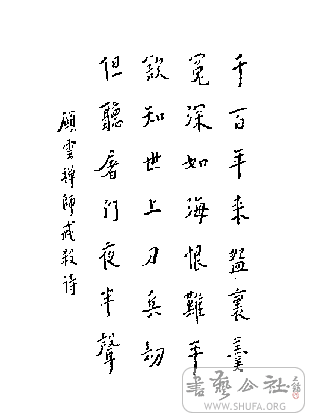 千百年来盌裏羹
冤深如海恨難平
欲知世上刀兵劫
但聽屠门夜半聲
願雲禅師戒殺诗
書藝公社
WWW.SHUFA.ORG